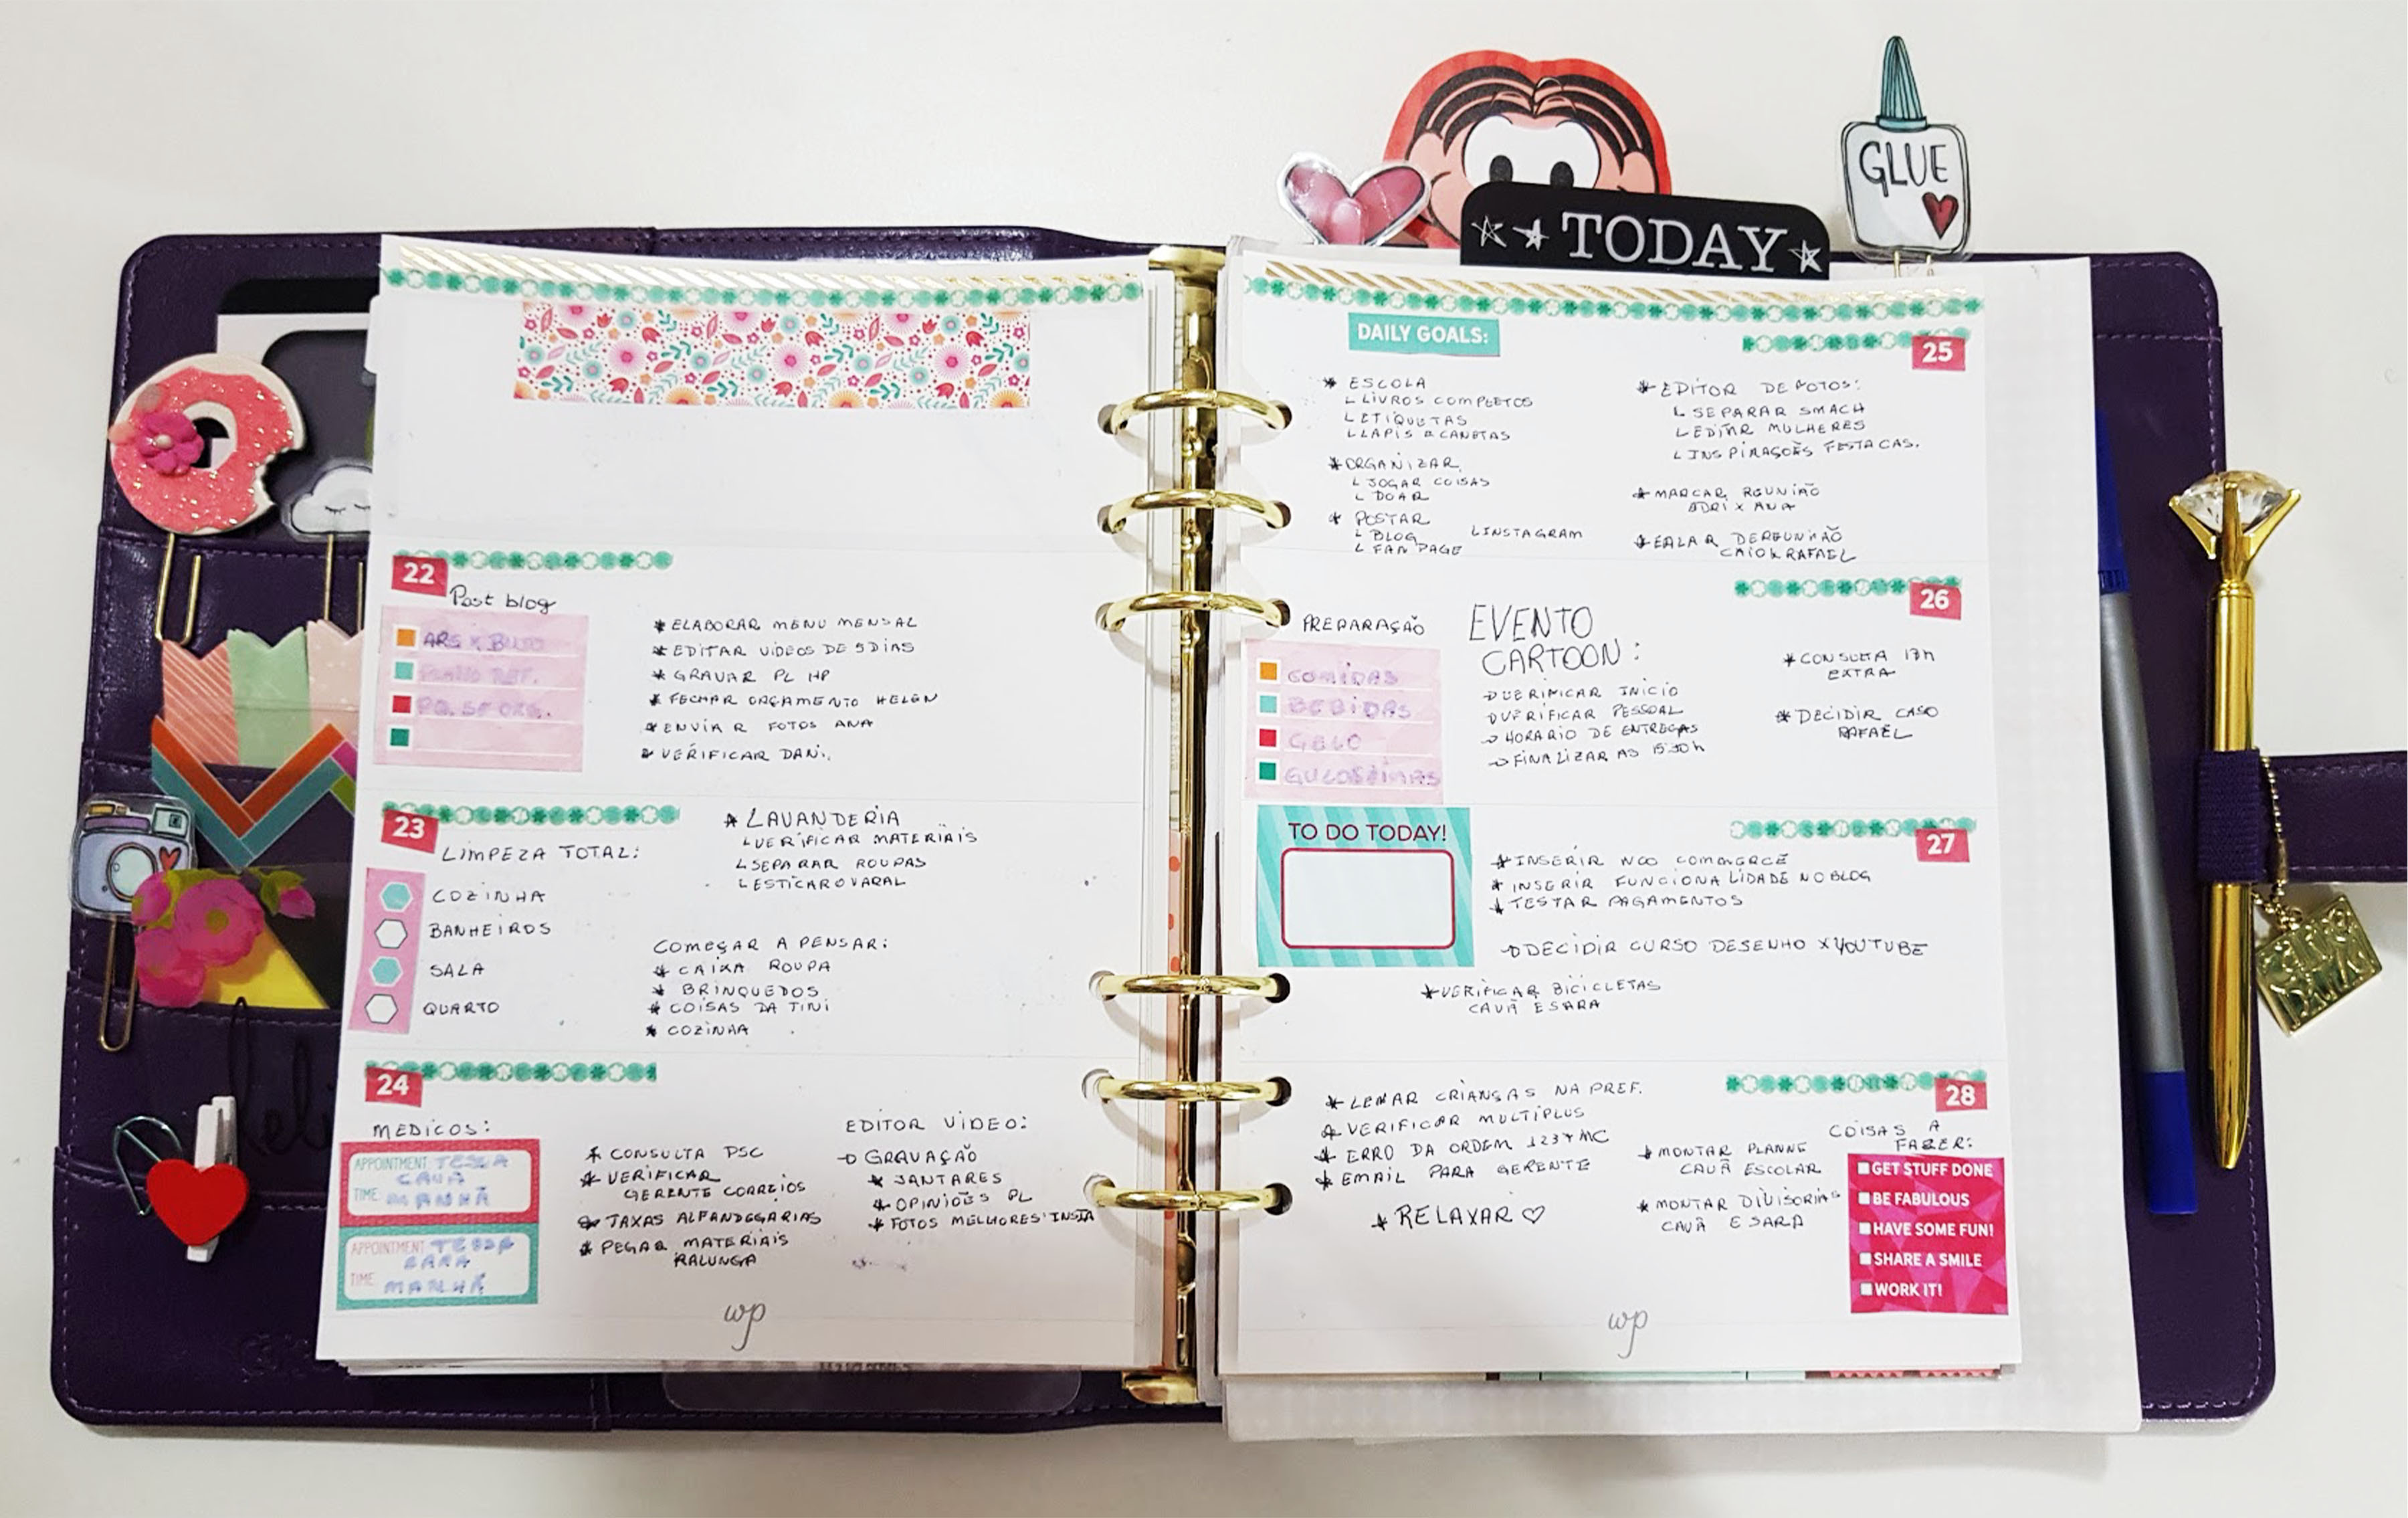 GLUE
TODAY
22
Post blog
ARS X BUJO
REF.
PQ. SE ORG.
* ELABORAR MENU MENSAL
* EDITAR VIDEOS DE 5 DIAS
* GRAVAR PL HP
* FECHAR ORÇAMENTO HELEN
* ENVIAR FOTOS ANA
* VERIFICAR DANI.
23
LIMPEZA TOTAL:
COZINHA
BANHEIROS
SALA
QUARTO
* LAVANDERIA
L VERIFICAR MATERIAIS
L SEPARAR ROUPAS
L ESTICAR O VARAL
COMEÇAR A PENSAR:
* CAIXA ROUPA
* BRINQUEDOS
* COISAS DA TINI
* COZINHA
24
MEDICOS:
APPOINTMENT:
CAUÃ
TIME: MANHÃ
APPOINTMENT:
SARA
TIME: MANHÃ
* CONSULTA PSC
* VERIFICAR
GERENTE CORREIOS
* TAXAS ALFANDEGARIAS
* PEGAR MATERIAIS
KALUNGA
EDITOR VIDEO:
→ GRAVAÇÃO
* JANTARES
* OPINIOES PL
* FOTOS MELHORES INSTA
wp
DAILY GOALS:
25
* ESCOLA
L LIVROS COMPLETOS
L ETIQUETAS
L LAPIS E CANETAS
* ORGANIZAR
L JOGAR COISAS
L DOAR
* POSTAR
L BLOG L INSTAGRAM
L FAN PAGE
* EDITOR DE FOTOS:
L SEPARAR SMACH
L EDITAR MULHERES
L INSPIRAÇÕES FESTA CAS.
* MARCAR REUNIÃO
ADRI X ANA
* FALAR DE REUNIÃO
CAIO X RAFAEL
26
PREPARAÇÃO
COMIDAS
BEBIDAS
GELO
GULOSEIMAS
EVENTO
CARTOON:
→ VERIFICAR INICIO
→ VERIFICAR PESSOAL
→ HORARIO DE ENTREGAS
→ FINALIZAR AS 15:30 h
* CONSULTA 17h
EXTRA
* DECIDIR CASO
RAFAEL
TO DO TODAY!
27
* INSERIR WOO COMMERCE
* INSERIR FUNCIONALIDADE NO BLOG
* TESTAR PAGAMENTOS
→ DECIDIR CURSO DESENHO X YOUTUBE
* VERIFICAR BICICLETAS
CAUÃ E SARA
28
* LEVAR CRIANÇAS NA PREF.
* VERIFICAR MULTIPLUS
* ERRO DA ORDEM 1234 MC
* EMAIL PARA GERENTE
* RELAXAR ♡
* MONTAR PLANNE
CAUÃ ESCOLAR
* MONTAR DIVISORIAS
CAUÃ E SARA
COISAS A
FAZER:
GET STUFF DONE
BE FABULOUS
HAVE SOME FUN!
SHARE A SMILE
WORK IT!
wp